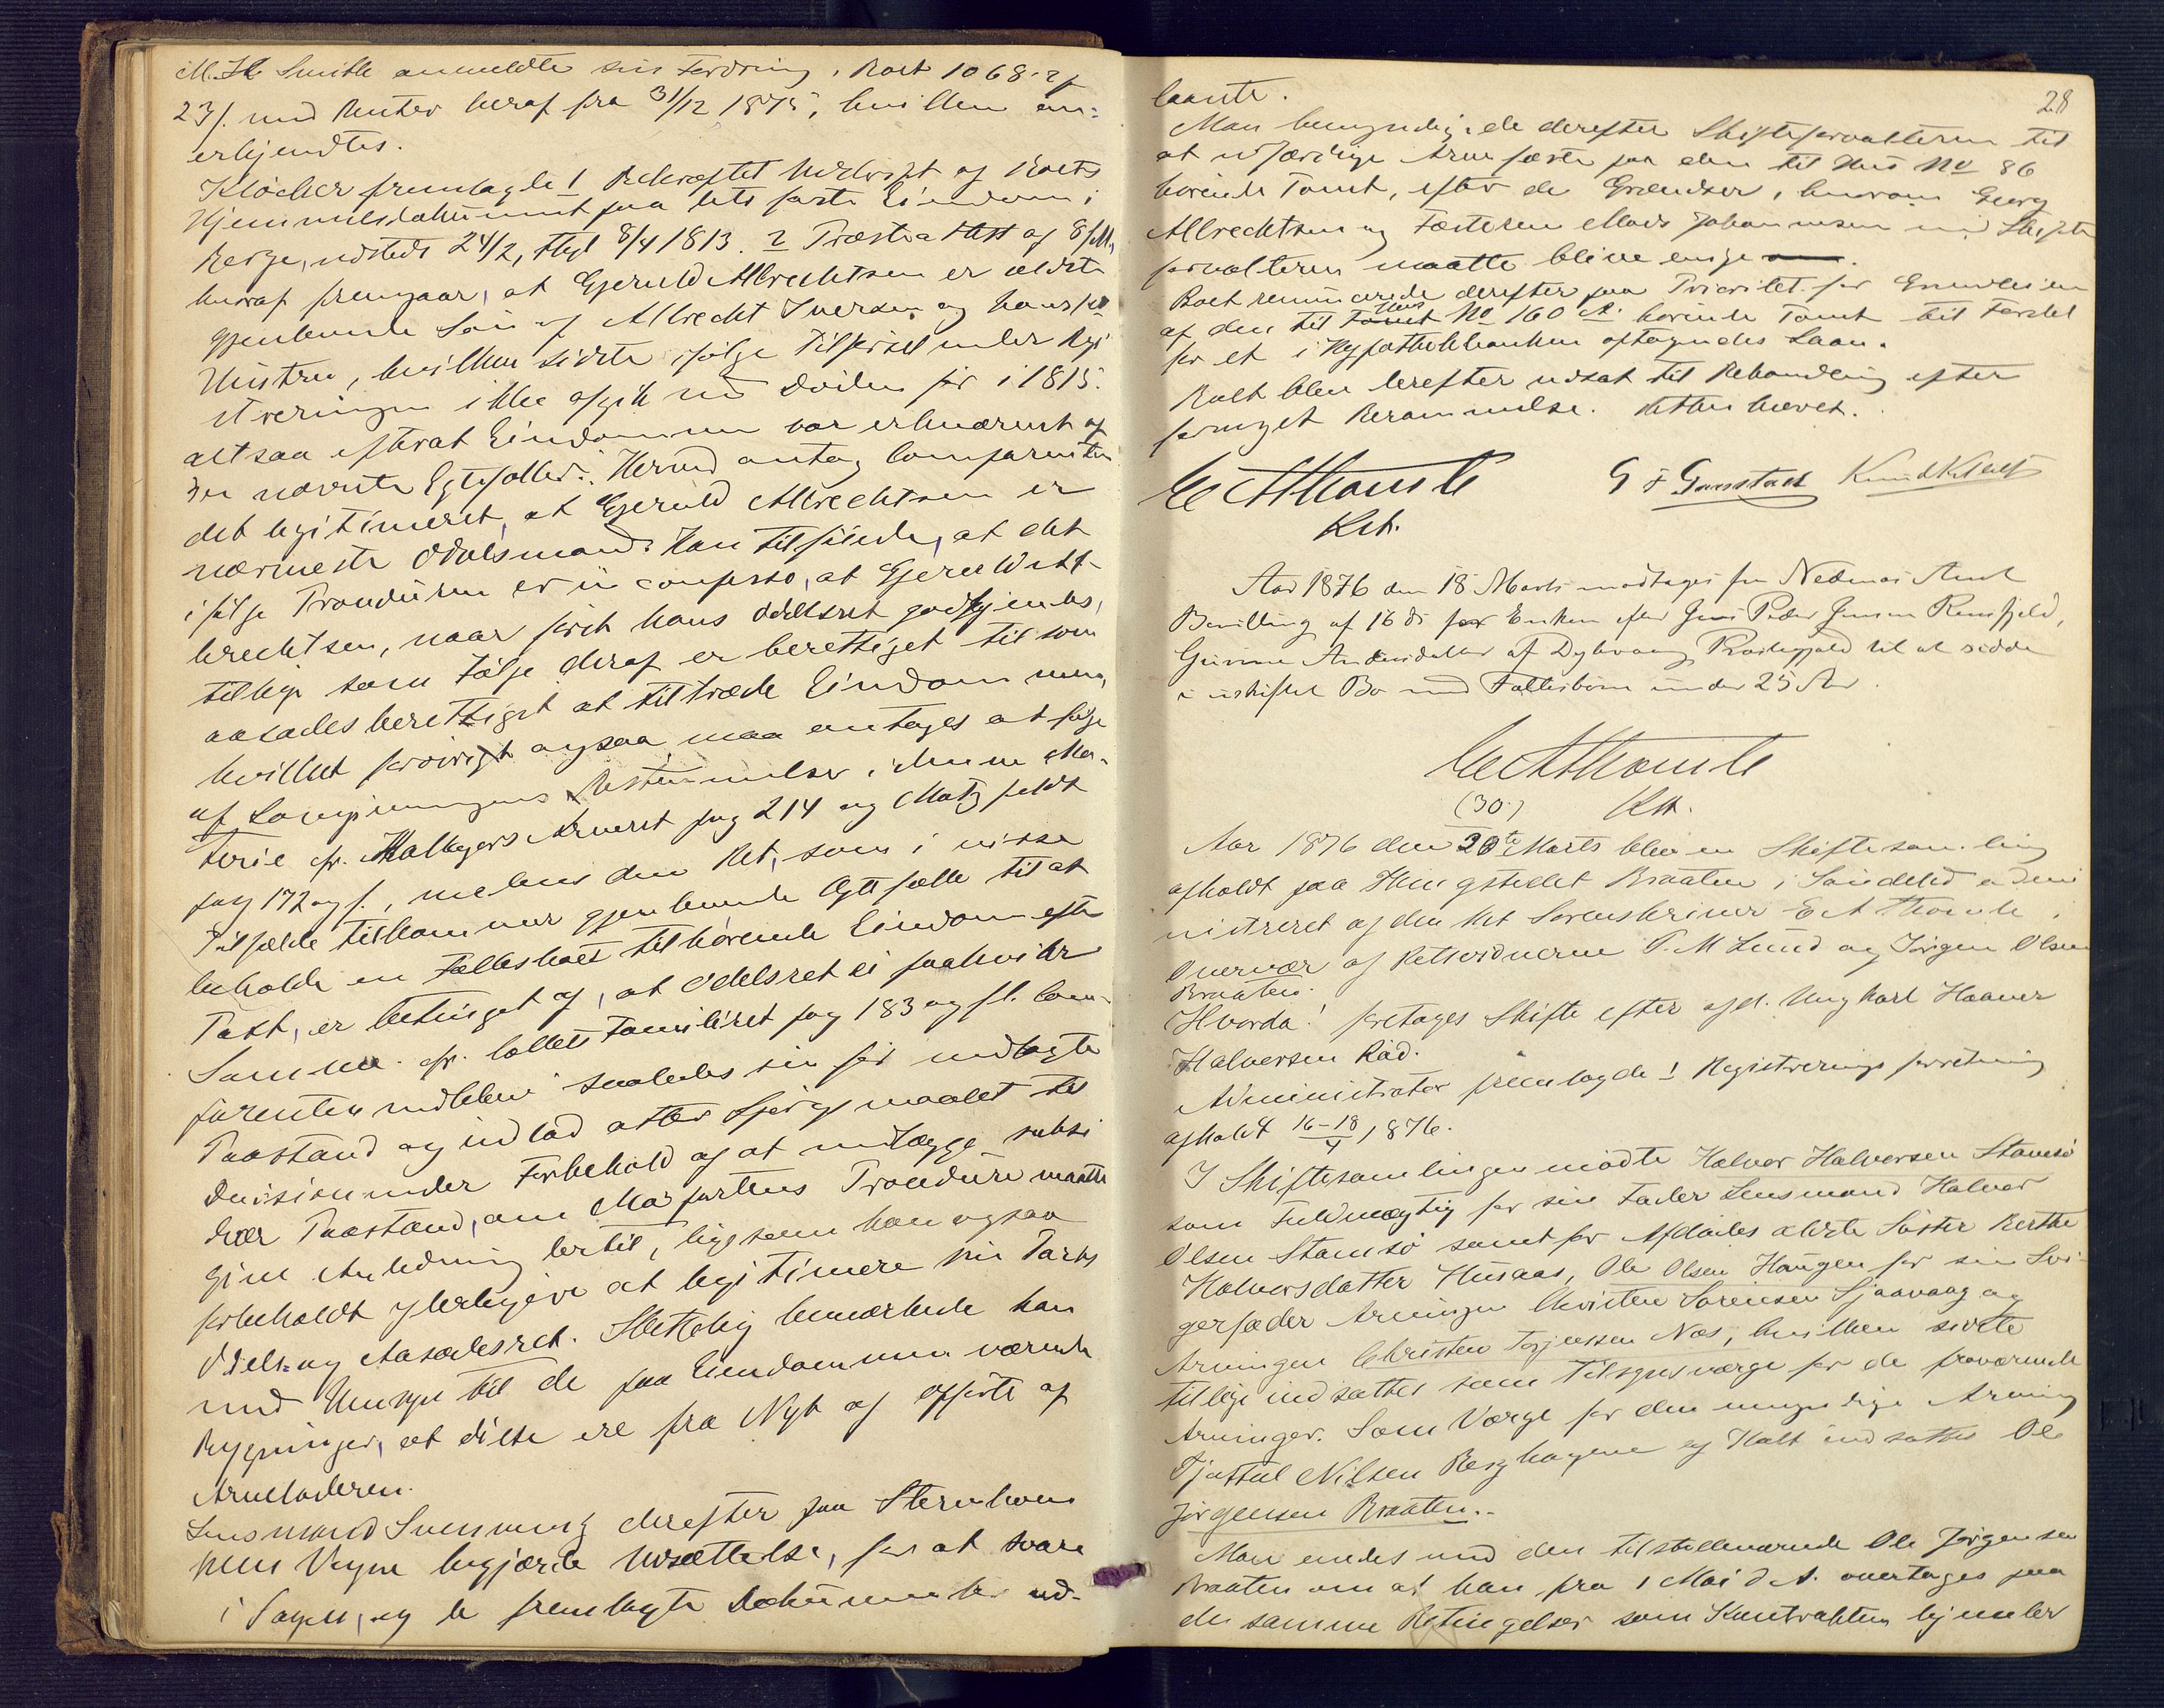 M. H. Smith anmeldte sin Fordring, stort 1068 2/
23/. med Renter heraf fra 31/12 1875, hvilken an-
erkjendtes.
Klöcker fremlagde 1 Bekræftet Udskrift af Boets
Hjemmelsdokument paa dets faste Eiendom i
Berge, udstedt 24/2, thgl 8/4 1813. 2 Præsteattest af 8/
hvoraf fremgaar, at Gjeruld Albrechtsen er ældste
gjenlevende Søn af Albrecht Iversen og hans
Hustru, hvilken sidste ifølge Tilførsel under Regi
streringen ikke afgik ved Døden før i 1815.
altsaa efterat Eiendommen var erhvervet af
de nævnte Egtefolk. Herved antog Comparenten
det legitimeret, at Gjeruld Albrechtsen er
nærmeste Odelsmand. Han tilføiede, at det
ifølge Proceduren er in confesso, at Gjeruld Al-
brechtsen, naar først hans Odelsret godkjendes,
tillige som Følge deraf er berettiget til som
aasædesberettiget at tiltræde Eiendommen,
hvilket forøvrigt ogsaa maa antages at følge
af Lovgivningens Bestemmelser i denne Ma-
terie cfr. Hallagers Arveret pag 214 og Motzfeldt
pag 172 og f., medens den Ret, som i visse
Tilfælde tilkommer gjenlevende Ægtefælle til at
beholde en Fællesboet tilhørende Eiendom efter
Taxt, er betinget af, at Odelsret ei paahviler
Samme. cfr. Colletts Familieret pag 183 og fl. Com-
parenten nedlagde saaledes sin før nedlagte
Paastand og indlod atter Spørgsmaalet til
Decision under Forbehold af at nedlægge subsi
diær Paastand, om Modpartens Procedure maatte
give Anledning dertil, ligesom han ogsaa
forbeholdt yderligere at legitimere sin Parts
Odels- og Aasædesret. Sluttelig bemærkede han
med Hensyn til de paa Eiendommen værende
Bygninger, at disse ere fra Nyt af opførte af
Arveladeren.
Lensmand Svenning derefter paa Stervboens
Vegne begjærte Udsættelse, for at svare
i Sagen, og de fremlagte Dokumenter ud-
28
laante.
Man bemyndigede derefter Skifteforvalteren til
at udfærdige Arvefæste paa den til Hus No 86
hørende Tomt, efter de Grændser, hvorom Georg
Albrechtsen og Fæsteren Mads Johannesen med Skifte
forvalteren maatte blive enige.
Boet renuncerede derefter paa Prioritet for
af den til Hus No 160 A. hørende Tomt til Fordel
for et i Hypothekbanken optagendes Laan.
Boet blev derefter udsat til Behandling efter
fornyet Berammelse. Retten hævet.
E A Thomle
Kst.
G F Gunstad
Aar 1876 den 18 Marts modtages fra Nedenes Amt
Bevilling af 16 ds for Enken efter Peder Jensen Rensfjeld,
Gunne Andersdatter af Dybvaag Præstegjeld til at sidde
i uskiftet Bo med Fællesbørn under 25 Aar
E A Thomle
(30.) Kst.
Aar 1876 den 30te Marts blev en Skiftesamling
afholdt paa Thingstedet Braaten i Søndeled admi
nistreret af den kst Sorenskriver E A Thomle i
Overvær af Retsvidnerne P. M Lund og Jørgen Olsen
Braaten.
Hvorda! foretages Skifte efter afd. Ungkarl Haaver
Halvorsen Rød.
Administrator fremlagde 1 Registreringsforretning
afholdt 16-18/4 1876.
I Skiftesamlingen mødte Halvor Halvorsen Stamsø
som Fuldmægtig for sin Fader Lensmand Halvor
Olsen Stamsø samt for Afdødes ældste Søster Berthe
Halvorsdatter Husaas, Ole Olsen Haugen for sin Svi-
gerfader Arvingen Christen Sørensen Sjaavaag og
Arvingen Christen Torjussen Næs, hvilken sidste
tillige indsattes som Tilsynsværge for de fraværende
Arvinger. Som Værge for den umyndige Arving
Tjøstul Nilsen Berghagene af Holt indsattes Ole
Jørgensen Braaten.
Man enedes med den tilstedeværende Ole Jørgensen
Braaten om at han fra 1 Mai d A. overtages paa
de samme Betingelser som Kontrakten hjemler